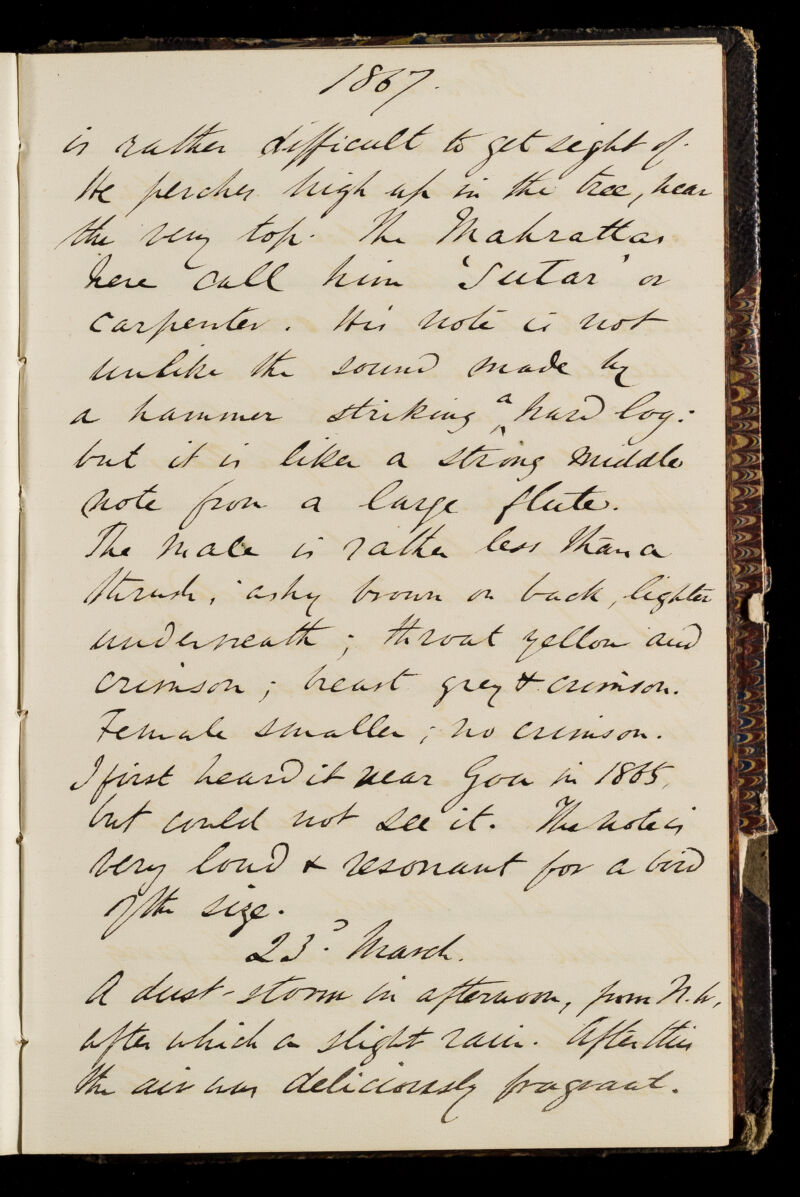 1867.
is rather difficult to get sight of.
He perches high up in the tree, near
the very top. The Mahrattas
here call him 'Sutar' or
carpenter. His note is not
unlike the sound made by
a hammer striking a hard log:
but it is liker a strong middle
note from a large flute.
The male is rather less than a
thrush; ashy brown on back, lighter
underneath; throat yellow and
crimson; breast grey & crimson.
Female smaller; no crimson.
I first heard it near Goa in 1865,
but could not see it. The note is
very loud & resonant for a bird
of the size.
23d. March.
A dust-storm in afternoon, from N.W,
after which a slight rain. After this
the air was deliciously fragrant.